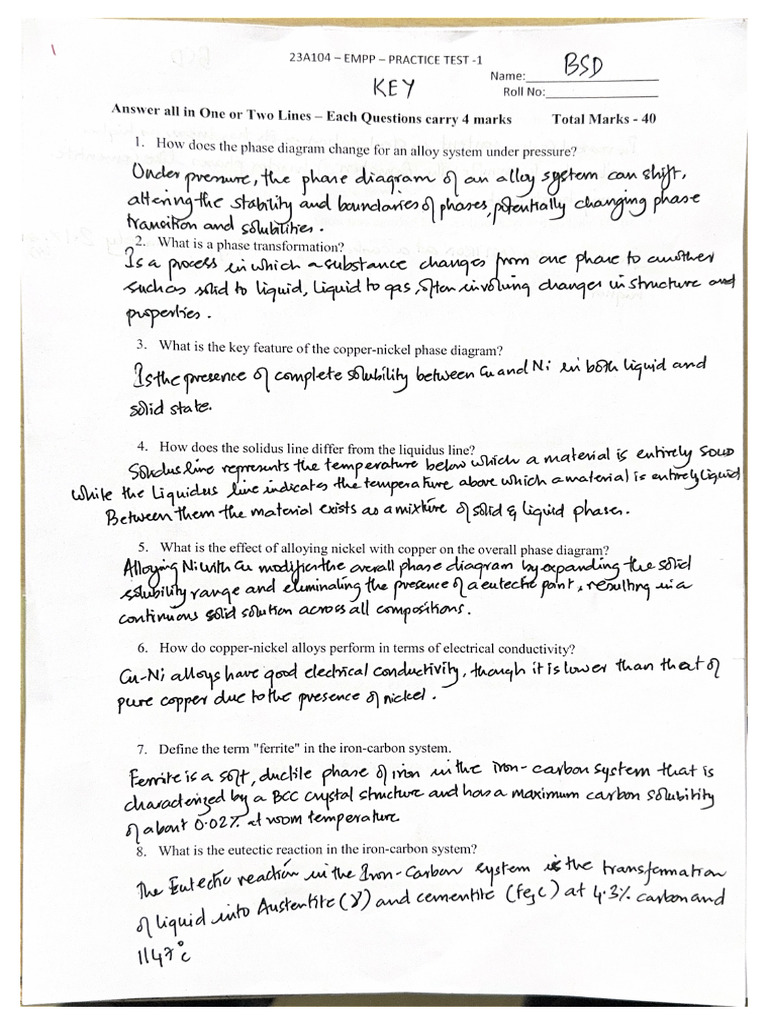 1
23A104 – EMPP – PRACTICE TEST -1
BSD
Name:
KEY
Roll No:
Answer all in One or Two Lines – Each Questions carry 4 marks Total Marks - 40
1. How does the phase diagram change for an alloy system under pressure?
Under pressure, the phase diagram of an alloy system can shift,
altering the stability and boundaries of phases, potentially changing phase
transition and solubilities.
2. What is a phase transformation?
Is a process in which a substance changes from one phase to another
such as solid to liquid, liquid to gas, often involving changes in structure and
properties.
3. What is the key feature of the copper-nickel phase diagram?
Is the presence of complete solubility between Cu and Ni in both liquid and
solid state.
4. How does the solidus line differ from the liquidus line?
Solidus line represents the temperature below which a material is entirely solid
while the liquidus line indicates the temperature above which a material is entirely liquid
Between them the material exists as a mixture of solid & liquid phases.
5. What is the effect of alloying nickel with copper on the overall phase diagram?
Alloying Ni with Cu modifies the overall phase diagram by expanding the solid
solubility range and eliminating the presence of a eutectic point, resulting in a
continuous solid solution across all compositions.
6. How do copper-nickel alloys perform in terms of electrical conductivity?
Cu-Ni alloys have good electrical conductivity, though it is lower than that of
pure copper due to the presence of nickel.
7. Define the term "ferrite" in the iron-carbon system.
Ferrite is a soft, ductile phase of iron in the iron-carbon system that is
characterized by a BCC crystal structure and has a maximum carbon solubility
of about 0.02% at room temperature
8. What is the eutectic reaction in the iron-carbon system?
The Eutectic reaction in the Iron-Carbon system is the transformation
of liquid into Austentite (γ) and cementite (Fe3C) at 4.3% carbon and
1147°c